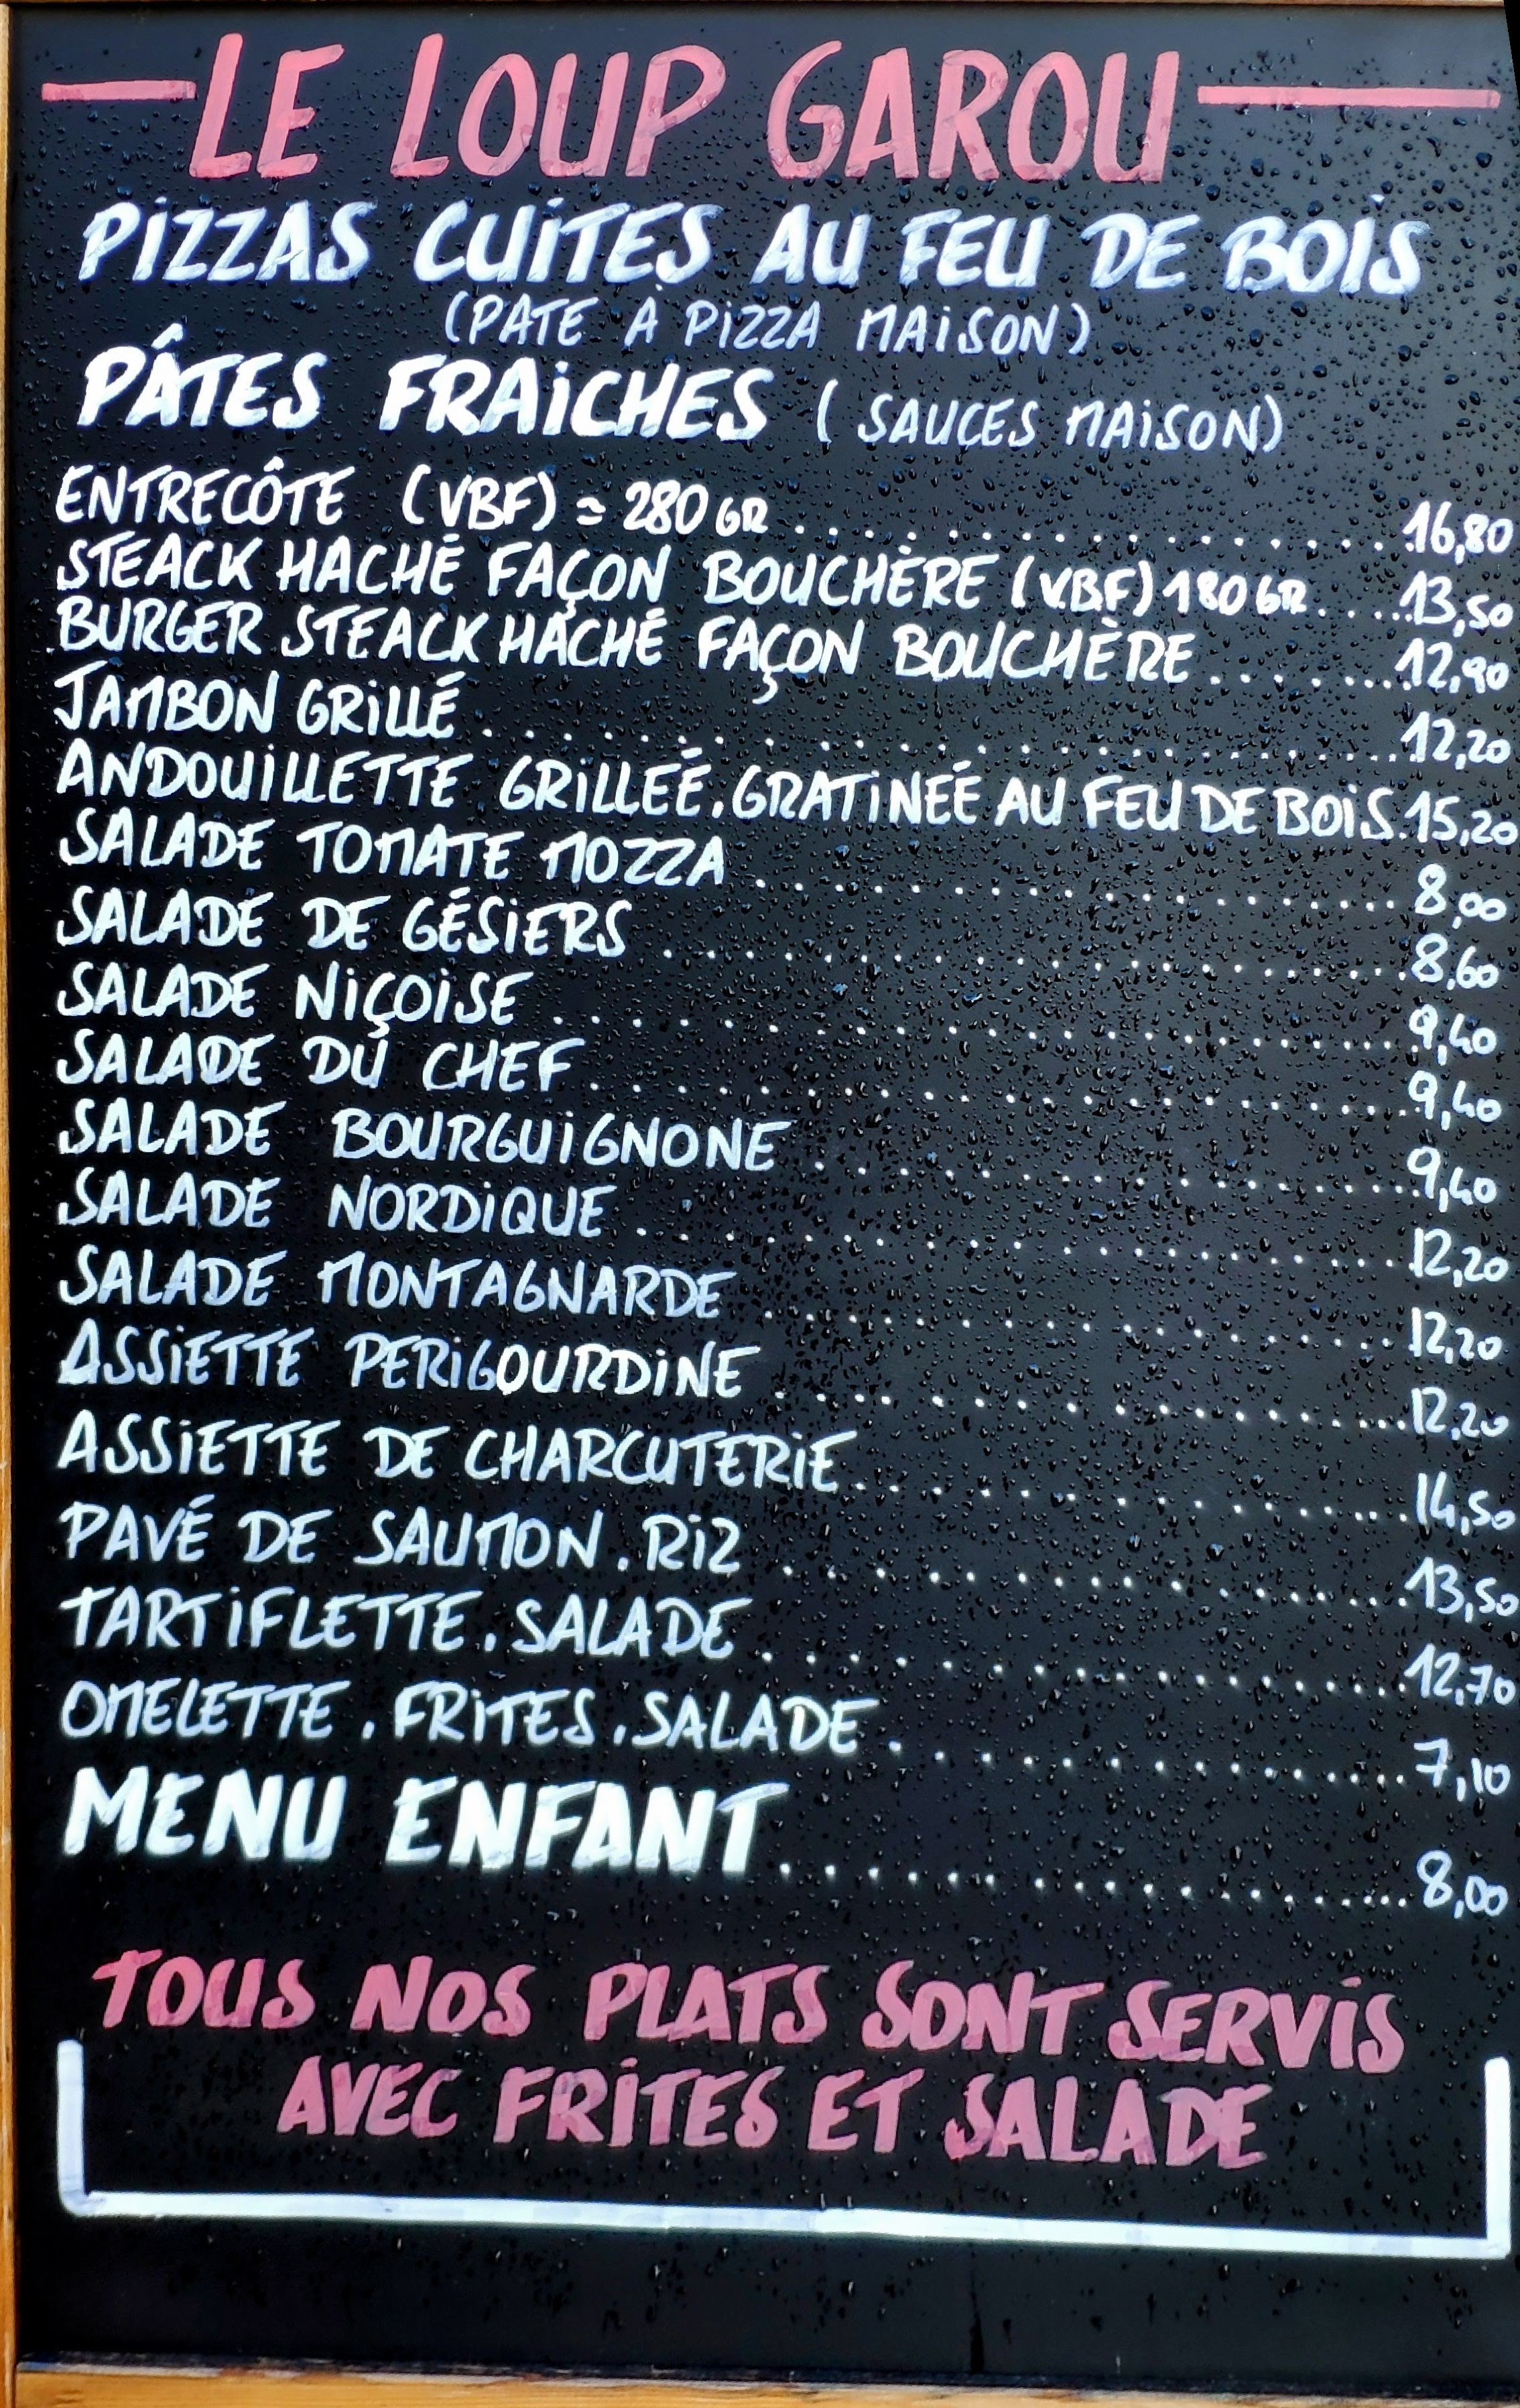 LE LOUP GAROU
PIZZAS CUITES AU FEU DE BOIS
(PATE À PIZZA MAISON)
PÂTES FRAICHES (SAUCES MAISON)
ENTRECÔTE (VBF) ≃ 280 GR .................. 16,80
STEACK HACHÉ FAÇON BOUCHÈRE (V.B.F) 180 GR ..... 13,50
BURGER STEACK HACHÉ FAÇON BOUCHÈRE ........ 12,90
JAMBON GRILLÉ ........................ 12,20
ANDOUILLETTE GRILLEÉ. GRATINEÉ AU FEU DE BOIS. 15,20
SALADE TOMATE MOZZA .................. 8,00
SALADE DE GÉSIERS .................... 8,60
SALADE NIÇOISE ....................... 9,40
SALADE DU CHEF ....................... 9,40
SALADE BOURGUIGNONE .................. 9,40
SALADE NORDIQUE ...................... 12,20
SALADE MONTAGNARDE ................... 12,20
ASSIETTE PERIGOURDINE ................ 12,20
ASSIETTE DE CHARCUTERIE .............. 14,50
PAVÉ DE SAUMON . RIZ ................. 13,50
TARTIFLETTE . SALADE ................. 12,70
OMELETTE . FRITES . SALADE ............... 7,10
MENU ENFANT ................ 8,00
TOUS NOS PLATS SONT SERVIS
AVEC FRITES ET SALADE